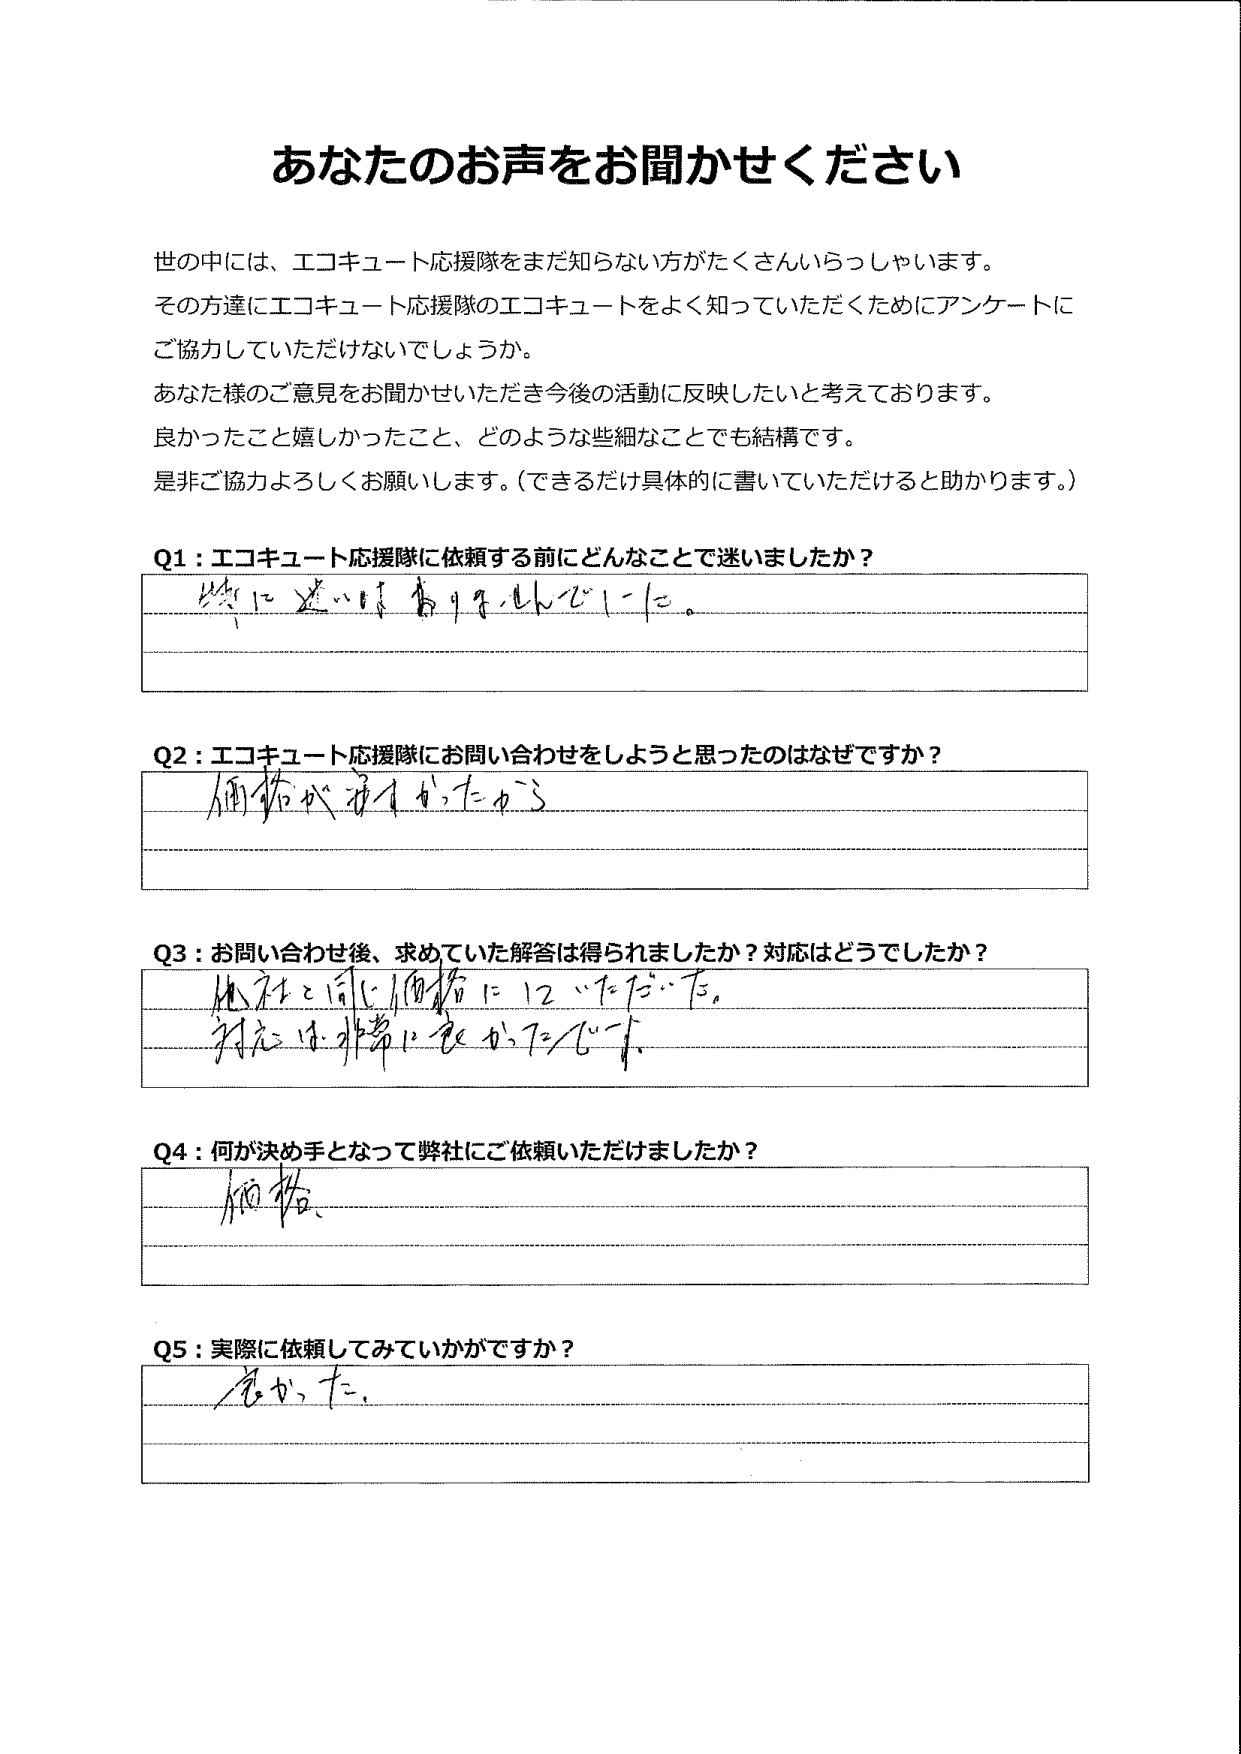 あなたのお声をお聞かせください
世の中には、エコキュート応援隊をまだ知らない方がたくさんいらっしゃいます。
その方達にエコキュート応援隊のエコキュートをよく知っていただくためにアンケートに
ご協力していただけないでしょうか。
あなた様のご意見をお聞かせいただき今後の活動に反映したいと考えております。
良かったこと嬉しかったこと、どのような些細なことでも結構です。
是非ご協力よろしくお願いします。（できるだけ具体的に書いていただけると助かります。）
Q1：エコキュート応援隊に依頼する前にどんなことで迷いましたか？
特に迷いはありませんでした。
Q2：エコキュート応援隊にお問い合わせをしようと思ったのはなぜですか？
価格が安かったから
Q3：お問い合わせ後、求めていた解答は得られましたか？対応はどうでしたか？
他社と同じ価格にしていただいた。
対応は非常に良かったです。
Q4：何が決め手となって弊社にご依頼いただけましたか？
価格、
Q5：実際に依頼してみていかがですか？
良かった。